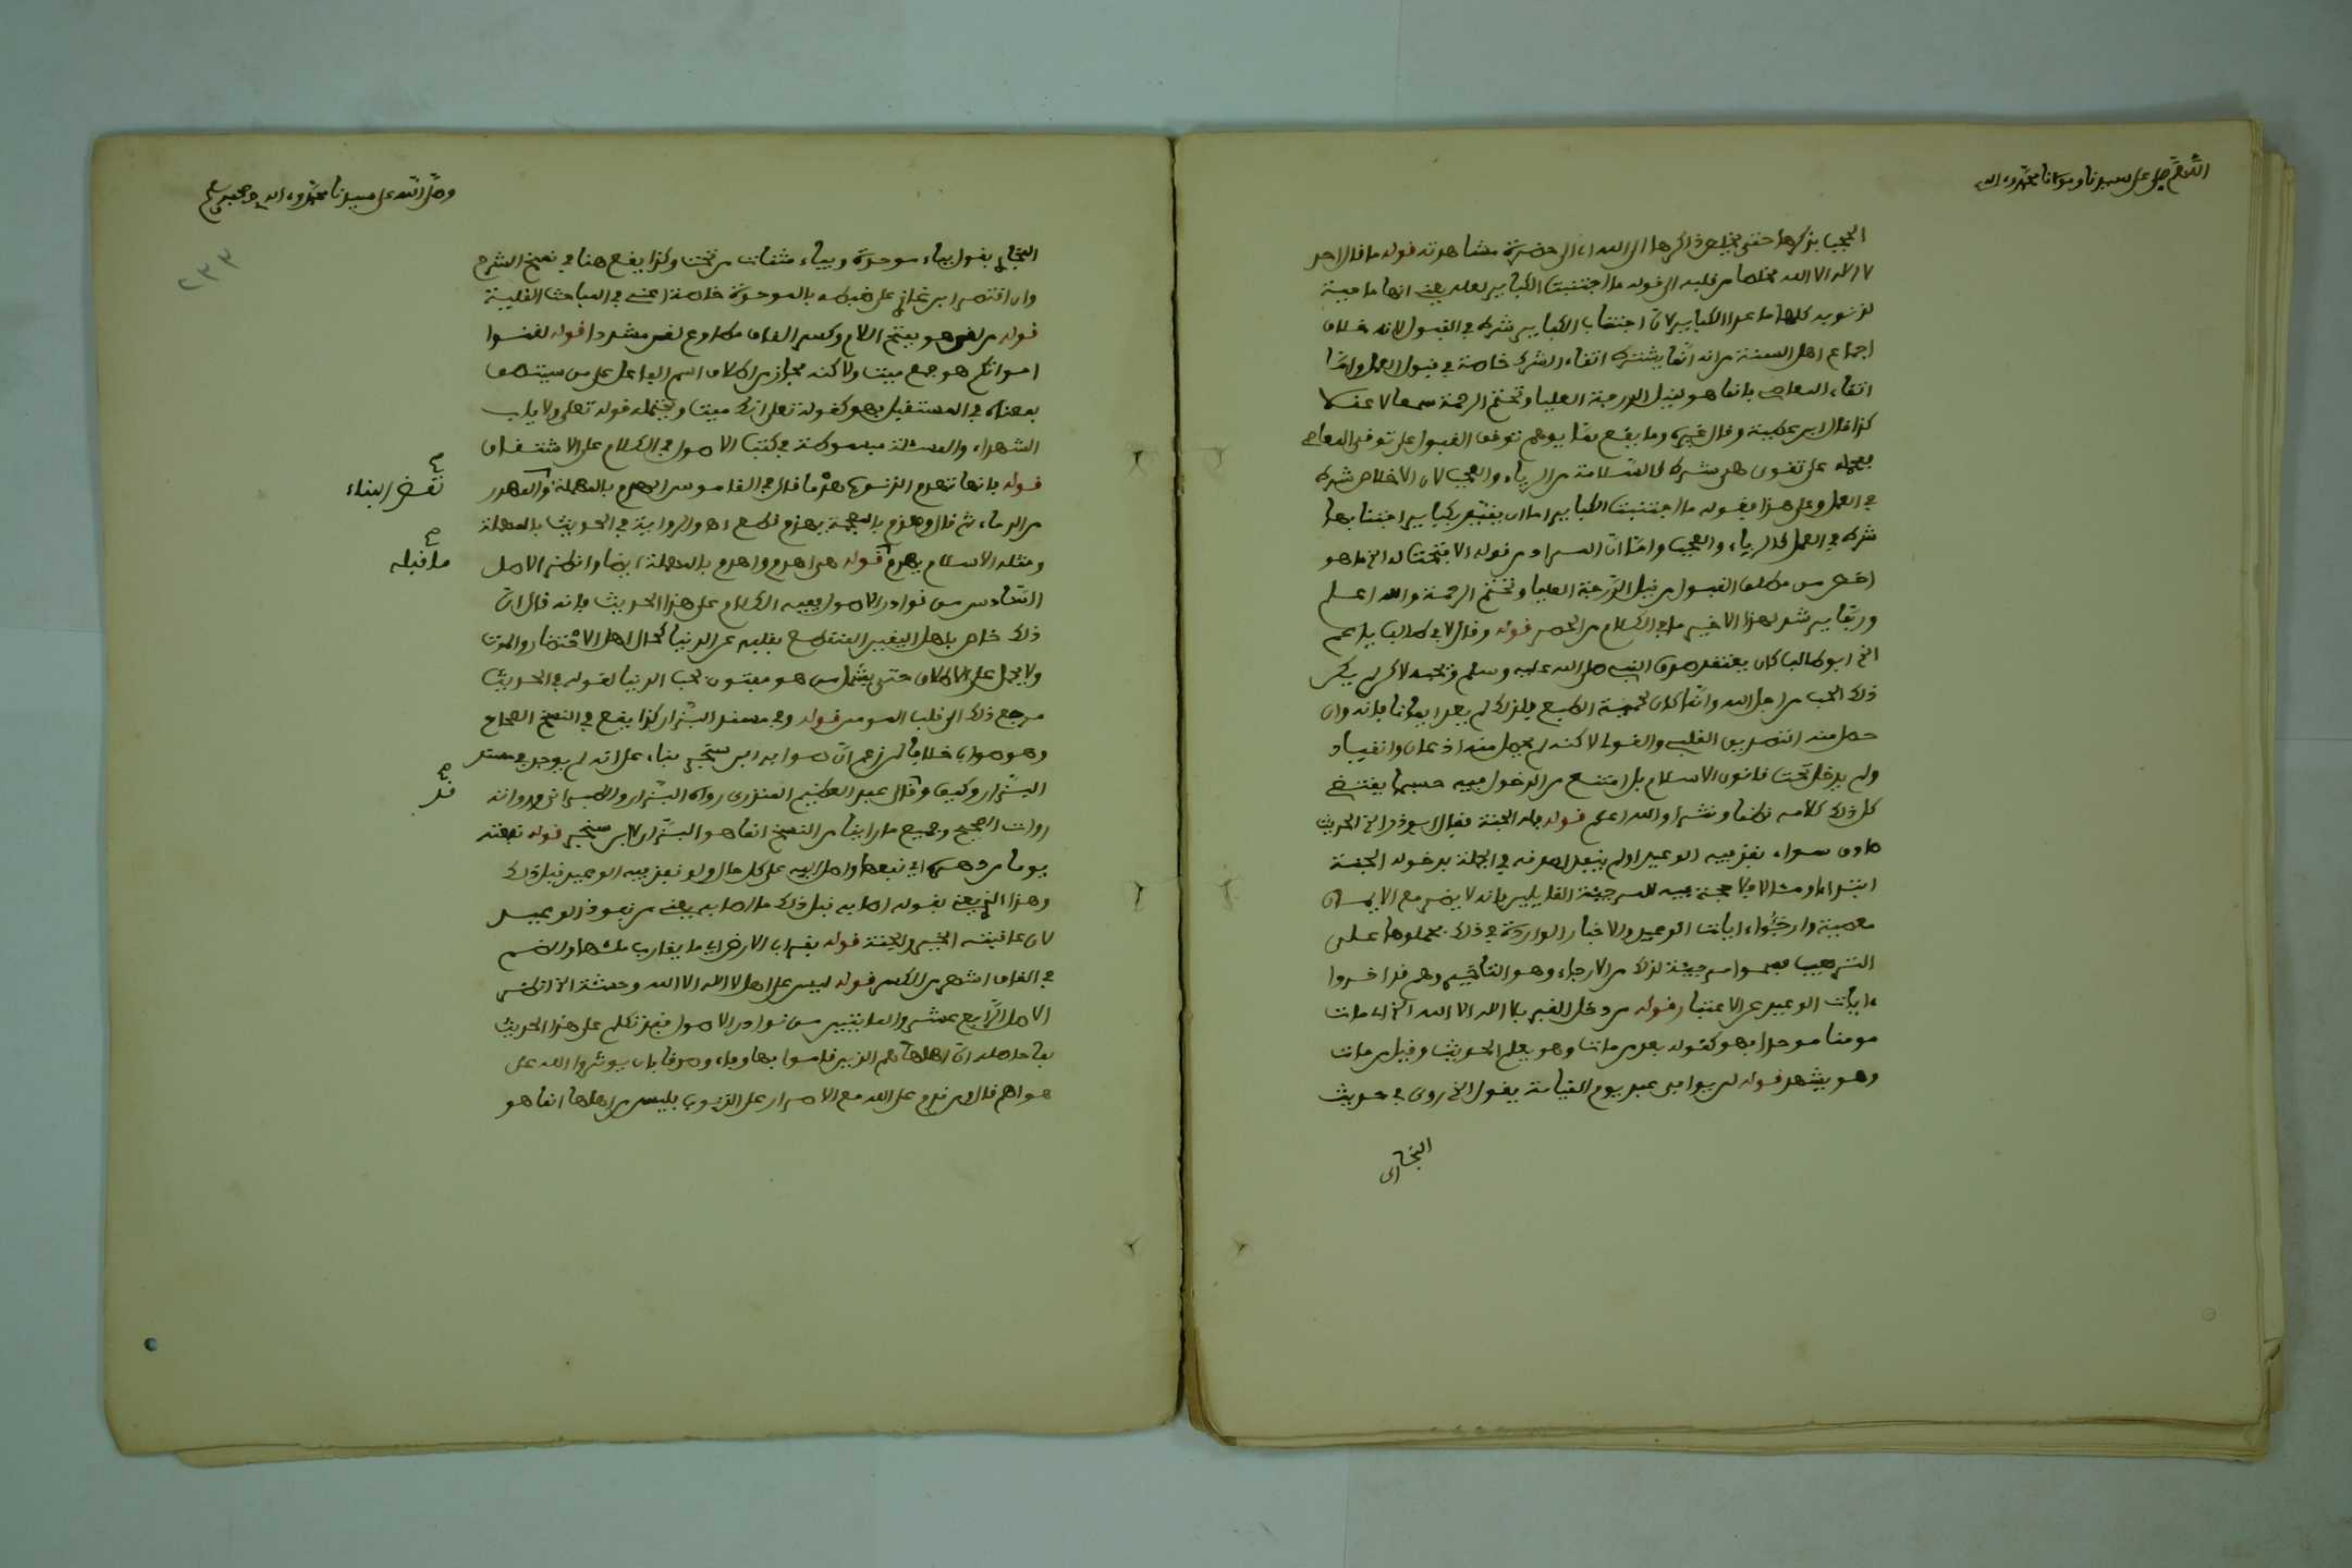 اللهم صل على سيدنا ومولانا محمد وءاله
الحجب بذكرها حتى يخلص ذاكرها الى الله اي الى حضرة مشاهدته قوله ما قال احد
لا اله الا الله مخلصا من قلبه الى قوله ما اجتنبت الكبائر لعله يعني انها ماحية
لذنوبه كلها ما عدا الكبائر لان اجتناب الكبائر شرط في القبول لانه خلاف
اجماع اهل السنة من انه انما يشترط اتقاء الشرك خاصة في قبول العمل واما
اتقاء المعاصي فانما هو لنيل الدرجة العليا وتختم الرحمة سمعا لا عقلا
كذا قال ابن عطية وقال غيره وما يقع مما يوهم توقف القبول على توقي المعاصي
فيحمل على تقوى هي شرط كالسلامة من الرياء والعجب لان الاخلاص شرط
في العمل وعلى هذا فقوله ما اجتنبت الكبائر اما ان يفسر بكبائر اجتنابها
شرط في العمل كالرياء والعجب واما ان المراد من قوله الا فتحت له الخ ما هو
اخص من مطلق القبول من نيل الدرجة العليا وتختم الرحمة والله اعلم
وربما يرشد لهذا الاخير ما في الكلام من الحصر قوله وقال لابي طالب يا عم
الخ ابو طالب كان يعتقد صدق النبي صلى الله عليه وسلم ويحبه لاكن لم يكن
ذلك الحب من اجل الله وانما كان لحمية الطبع فلذلك لم يعد ايمانا فانه وان
حصل منه التصديق القلبي والقولي لاكنه لم يحصل منه اذعان وانقياد
ولم يدخل تحت قانون الاسلام بل امتنع من الدخول فيه حسبما يقتضي
كل ذلك كلامه نظما ونثرا والله اعلم قوله فله الجنة فقال ابو ذر الخ الحديث
صادق سواء نفذ فيه الوعيد او لم ينفذ لصدقه في الجملة بدخوله الجنة
ابتداء او مئالا فلا حجة فيه للمرجئة القائلين بانه لا يضر مع الايمان
معصية وارجئوا ءايات الوعيد والاخبار الواردة في ذلك فحملوها على
الترهيب فسموا مرجئة لذلك من الارجاء وهو التاخير وهم قد اخروا
ءايات الوعيد عن الاعتبار قوله من دخل القبر بلا اله الا الله الخ اي مات
مومنا موحدا فهو كقوله بعد من مات وهو يعلم الحديث وقيل من مات
وهو يشهد قوله لن يوافي عبد يوم القيامة يقول الخ روى في حديث
البخاري
وصلى الله على سيدنا محمد وءاله وصحبه وسلم
٢٣٣
البخاري يقول بياء موحدة وبياء مثناة من تحت وكذا يقع هنا في نسخ الشرح
وان اقتصر ابن غازي على ضبطه بالموحدة خلاصة اعني في المباحث القلبية
قوله من لقن هو بفتح اللام وكسر القاف مطاوع لقن مشددا قوله لقنوا
امواتكم هو جمع ميت ولاكنه مجاز من اطلاق اسم الفاعل على من سيتصف
بمعناه في المستقبل فهو كقوله تعلى انك ميت ويحتمله قوله تعلى ولا ياب
الشهداء والمسئلة مبسوطة في كتب الاصول في الكلام على الاشتقاق
قوله فانها تهدم الذنوب هدما قال في القاموس الهدم بالمهملة والمهدر
نقض البناء صح
من الدماء ثم قال وهذم بالمعجمة يهذم قطع اهـ والرواية في الحديث بالمهملة
ومثله الاسلام يهدم قوله هي اهدم واهدم بالمهملة ايضا وانظر الاصل
ما قبله صح
السادس من نوادر الاصول ففيه الكلام على هذا الحديث فانه قال ان
ذلك خاص باهل اليقين المنقطع بقلبه عن الدنيا كحال اهل الاحتضار والموت
ولا يحمل على الاطلاق حتى يشمل من هو مفتون بحب الدنيا لقوله في الحديث
مرجع ذلك الى قلب المومن قوله وفي مسند البزار كذا يقع في النسخ الصحاح
وهو صواب خلافا لمن زعم ان صوابه ابن سنجر بناء على انه لم يوجد في مسند
البزار وكيف وقد قال عبد العظيم المنذري رواه البزار والطبراني ورواته
قد صح
رواة الصحيح وجميع ما راينا من النسخ انما هو البزار لا ابن سنجر قوله نفعته
يوما من دهره اي نفعها واصل اليه على كل حال ولو نفذ فيه الوعيد قبل ذلك
وهذا الذي يعني بقوله اصابه قبل ذلك ما اصابه يعني من نفوذ الوعيد
لان عاقبته الخير والجنة قوله بقراب الارض اي ما يقارب ملئها والضم
في القاف اشهر من الكسر قوله ليس على اهل لا اله الا الله وحشة الخ انظر
الاصل الرابع عشر والمايتين من نوادر الاصول فقد تكلم على هذا الحديث
بما حاصله ان اهلها هم الذين قاموا بها وفاء وصدقا بان يوثروا الله على
هواهم قال من قدم على الله مع الاصرار على الذنوب فليس من اهلها انما هو